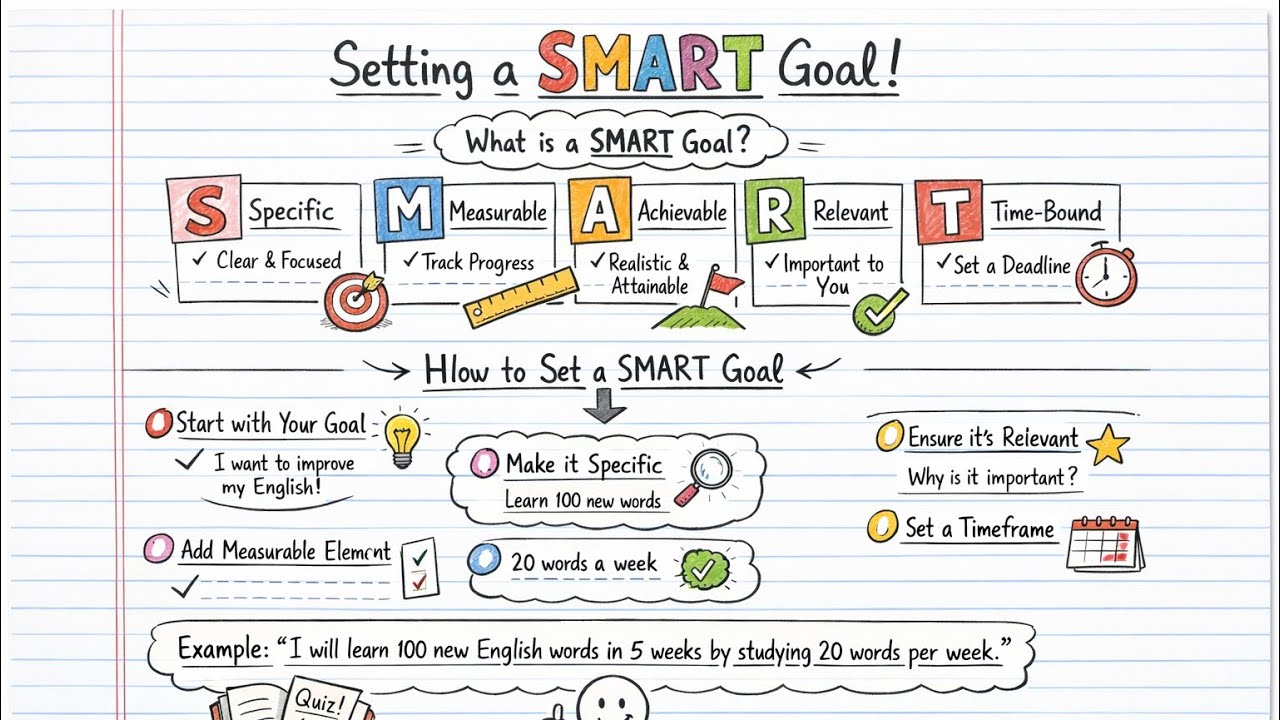 Setting a SMART Goal!
What is a SMART Goal?
S Specific
✓ Clear & Focused
M Measurable
✓ Track Progress
A Achievable
✓ Realistic &
Attainable
R Relevant
✓ Important to
You
T Time-Bound
✓ Set a Deadline
Hlow to Set a SMART Goal
0 Start with Your Goal
✓ I want to improve
my English!
0 Add Measurable Element
✓
0 Make it Specific
Learn 100 new words
0 20 words a week
0 Ensure it's Relevant
Why is it important?
0 Set a Timeframe
Example: "I will learn 100 new English words in 5 weeks by studying 20 words per week."
Quiz!